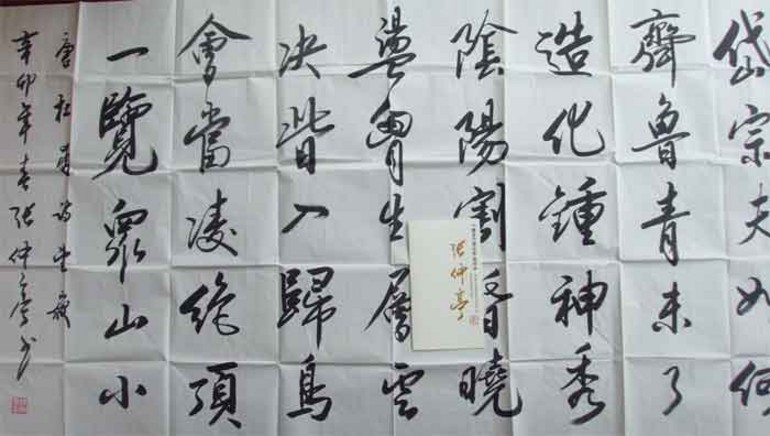 岱宗夫如何
齊魯青未了
造化鍾神秀
陰陽割昏曉
盪胷生層雲
决眥入歸鳥
會當凌絶頂
一覽衆山小
唐杜甫詩望嶽
辛卯年春张仲亭书
张仲亭